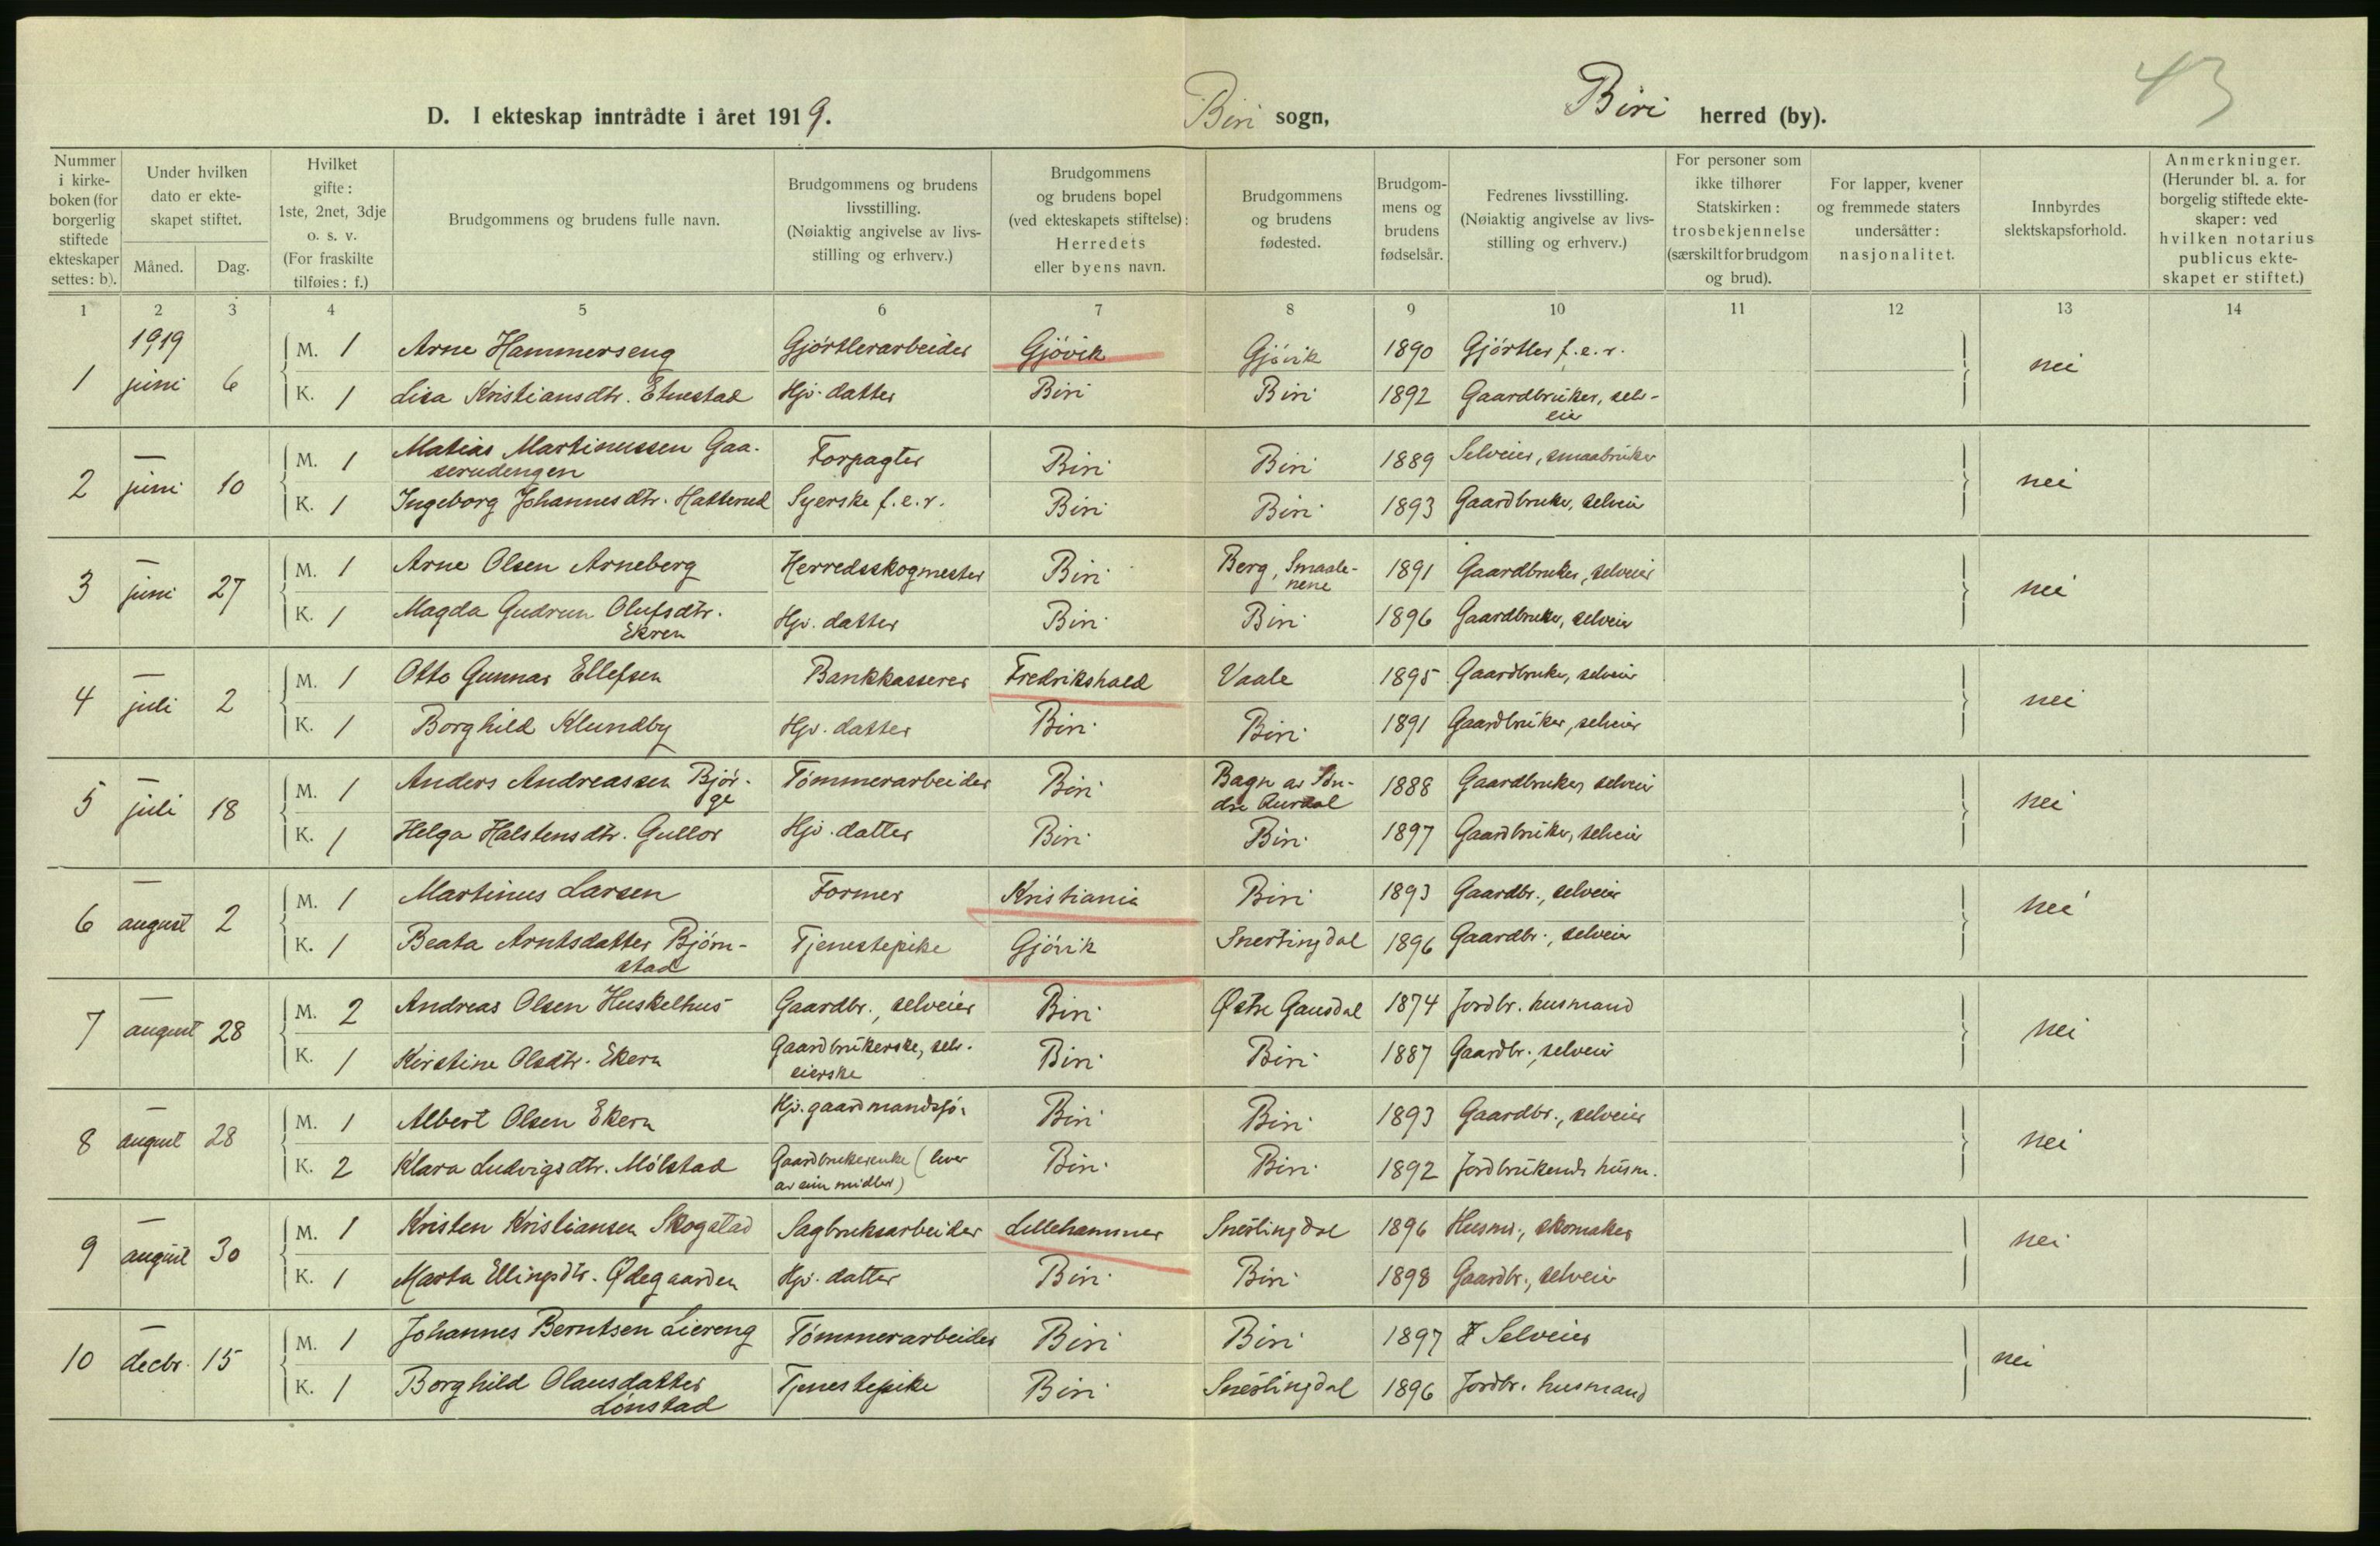 43
D. I ekteskap inntrådte i året 1919. Biri sogn, Biri herred (by).
Nummer i kirkeboken (for borgerlig stiftede ekteskaper settes: b).
Under hvilken dato er ekteskapet stiftet.
Måned. Dag.
Hvilket gifte: 1ste, 2net, 3dje o. s. v. (For fraskilte tilføies: f.)
Brudgommens og brudens fulle navn.
Brudgommens og brudens livsstilling. (Nøiaktig angivelse av livsstilling og erhverv.)
Brudgommens og brudens bopel (ved ekteskapets stiftelse): Herredets eller byens navn.
Brudgommens og brudens fødested.
Brudgommens og brudens fødselsår.
Fedrenes livsstilling. (Nøiaktig angivelse av livsstilling og erhverv.)
For personer som ikke tilhører Statskirken: trosbekjennelse (særskilt for brudgom og brud).
For lapper, kvener og fremmede staters undersåtter: nasjonalitet.
Innbyrdes slektskapsforhold.
Anmerkninger. (Herunder bl. a. for borgelig stiftede ekteskaper: ved hvilken notarius publicus ekteskapet er stiftet.)
1 2 3 4 5 6 7 8 9 10 11 12 13 14
1919
M. 1 Arne Hammerseng Gjørtlerarbeider Gjøvik Gjøvik 1890 Gjørtler f.e.r.
1 juni 6 nei
K. 1 Lisa Kristiansdtr. Etnestad Hjv. datter Biri Biri 1892 Gaardbruker, selv-
eier
M. 1 Matias Martinussen Gaa-
serudengen Forpagter Biri Biri 1889 Selveier, smaabruker
2 — juni 10 nei
K. 1 Ingeborg Johannesdtr. Hatterud Syerske f.e.r. Biri Biri 1893 Gaardbruker, selveier
M. 1 Arne Olsen Arneberg Herredsskogmester Biri Berg, Smaale-
nene 1891 Gaardbruker, selveier
3 — juni 27 nei
K. 1 Magda Gudrun Olufsdtr.
Ekren Hjv. datter Biri Biri 1896 Gaardbruker, selveier
M. 1 Otto Gunnar Ellefsen Bankkasserer Fredrikshald Vaale 1895 Gaardbruker, selveier
4 — juli 2 nei
K. 1 Borghild Klundby Hjv. datter Biri Biri 1891 Gaardbruker, selveier
M. 1 Anders Andreassen Bjør-
ge Tømmerarbeider Biri Bagn av Søn-
dre Aurdal 1888 Gaardbruker, selveier
5 — juli 18 nei
K. 1 Helga Halstensdtr. Gullor Hjv. datter Biri Biri 1897 Gaardbruker, selveier
M. 1 Martinus Larsen Former Kristiania Biri 1893 Gaardbr., selveier
6 — august 2 nei
K. 1 Beata Arntsdatter Bjørn-
stad Tjenestepike Gjøvik Snertingdal 1896 Gaardbr., selveier
M. 2 Andreas Olsen Huskelhus Gaardbr., selveier Biri Østre Gausdal 1874 Jordbr. husmand
7 — august 28 nei
K. 1 Kirstine Olsdtr. Ekern Gaardbrukerske, selv-
eierske Biri Biri 1887 Gaardbr., selveier
M. 1 Albert Olsen Ekern Hjv. gaardmandssø. Biri Biri 1893 Gaardbr., selveier
8 — august 28 nei
K. 2 Klara Ludvigsdtr. Mølstad Gaardbrukerenke (lever
av sine midler) Biri Biri 1892 Jordbrukende husm.
M. 1 Kristen Kristiansen Skogstad Sagbruksarbeider Lillehammer Snertingdal 1896 Husm., skomaker
9 — august 30 nei
K. 1 Marta Ellingsdtr. Ødegaarden Hjv. datter Biri Biri 1898 Gaardbr., selveier
M. 1 Johannes Berntsen Liereng Tømmerarbeider Biri Biri 1897 Selveier
10 — decbr. 15 nei
K. 1 Borghild Olausdatter
Lønstad Tjenestepike Biri Snertingdal 1896 Jordbr. husmand